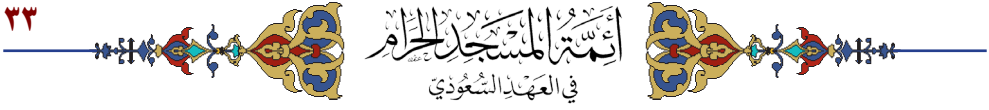 ٣٣
أَئِمَّةُ المَسْجِدِ الحَرَامِ
في العَهْدِ السُّعُودِيّ